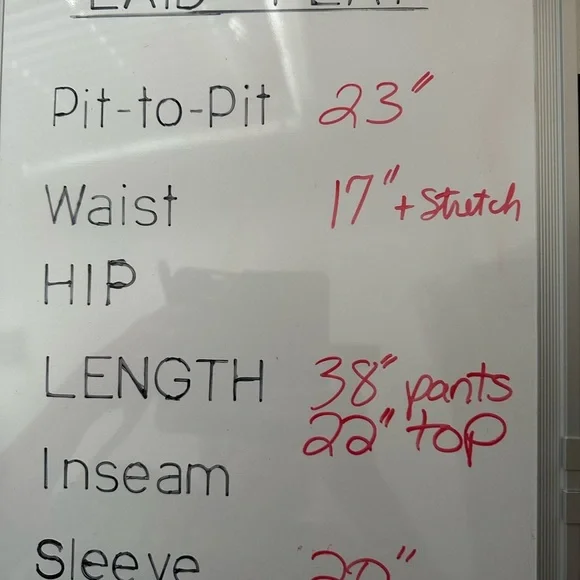 LAID FLAT
Pit-to-Pit 23"
Waist 17" + Stretch
HIP
LENGTH 38" pants
22" top
Inseam
Sleeve 20"